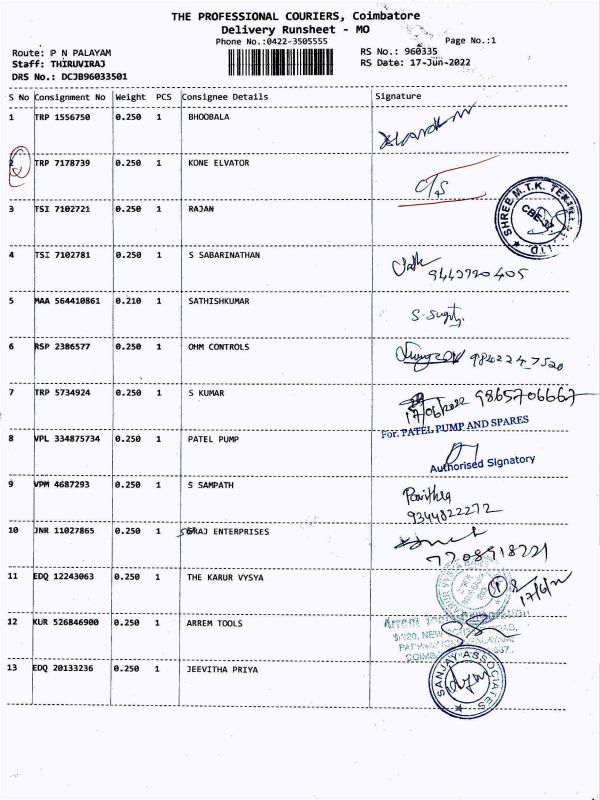 THE PROFESSIONAL COURIERS, Coimbatore
Delivery Runsheet - MO
Phone No.:0422-3505555
Page No.:1
Route: P N PALAYAM
RS No.: 960335
Staff: THIRUVIRAJ
RS Date: 17-Jun-2022
DRS No.: DCJB96033501
S No Consignment No Weight PCS Consignee Details Signature
1 TRP 1556750 0.250 1 BHOOBALA
2 TRP 7178739 0.250 1 KONE ELVATOR
SHREE M.T.K. CBE-37
3 TSI 7102721 0.250 1 RAJAN
4 TSI 7102781 0.250 1 S SABARINATHAN
9443720405
5 MAA 564410861 0.210 1 SATHISHKUMAR
6 RSP 2386577 0.250 1 OHM CONTROLS
9842247520
7 TRP 5734924 0.250 1 S KUMAR
17/06/2022 9865706667
For. PATEL PUMP AND SPARES
8 VPL 334875734 0.250 1 PATEL PUMP
Authorised Signatory
9 VPM 4687293 0.250 1 S SAMPATH
Pavithra
9344822272
10 JNR 11027865 0.250 1 RAJ ENTERPRISES
7708918221
11 EDQ 12243063 0.250 1 THE KARUR VYSYA
17/6/22
12 KUR 526846900 0.250 1 ARREM TOOLS
13 EDQ 20133236 0.250 1 JEEVITHA PRIYA
SANJAY ASSOCIATES